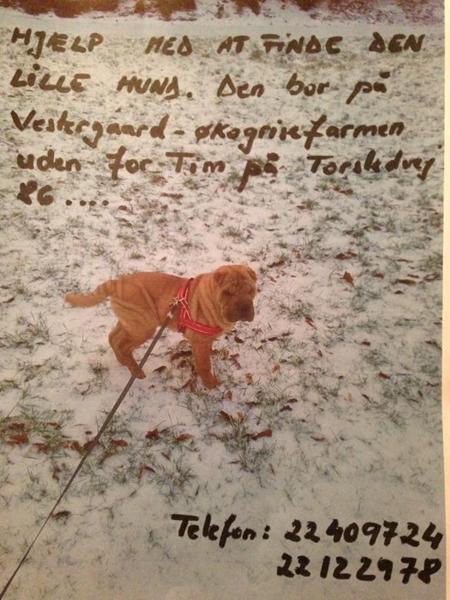 HJÆLP MED AT FINDE DEN
LILLE HUND. Den bor på
Vestergaard - økogrisefarmen
uden for Tim på Torstedvej
86 .....
Telefon: 22409724
22122978